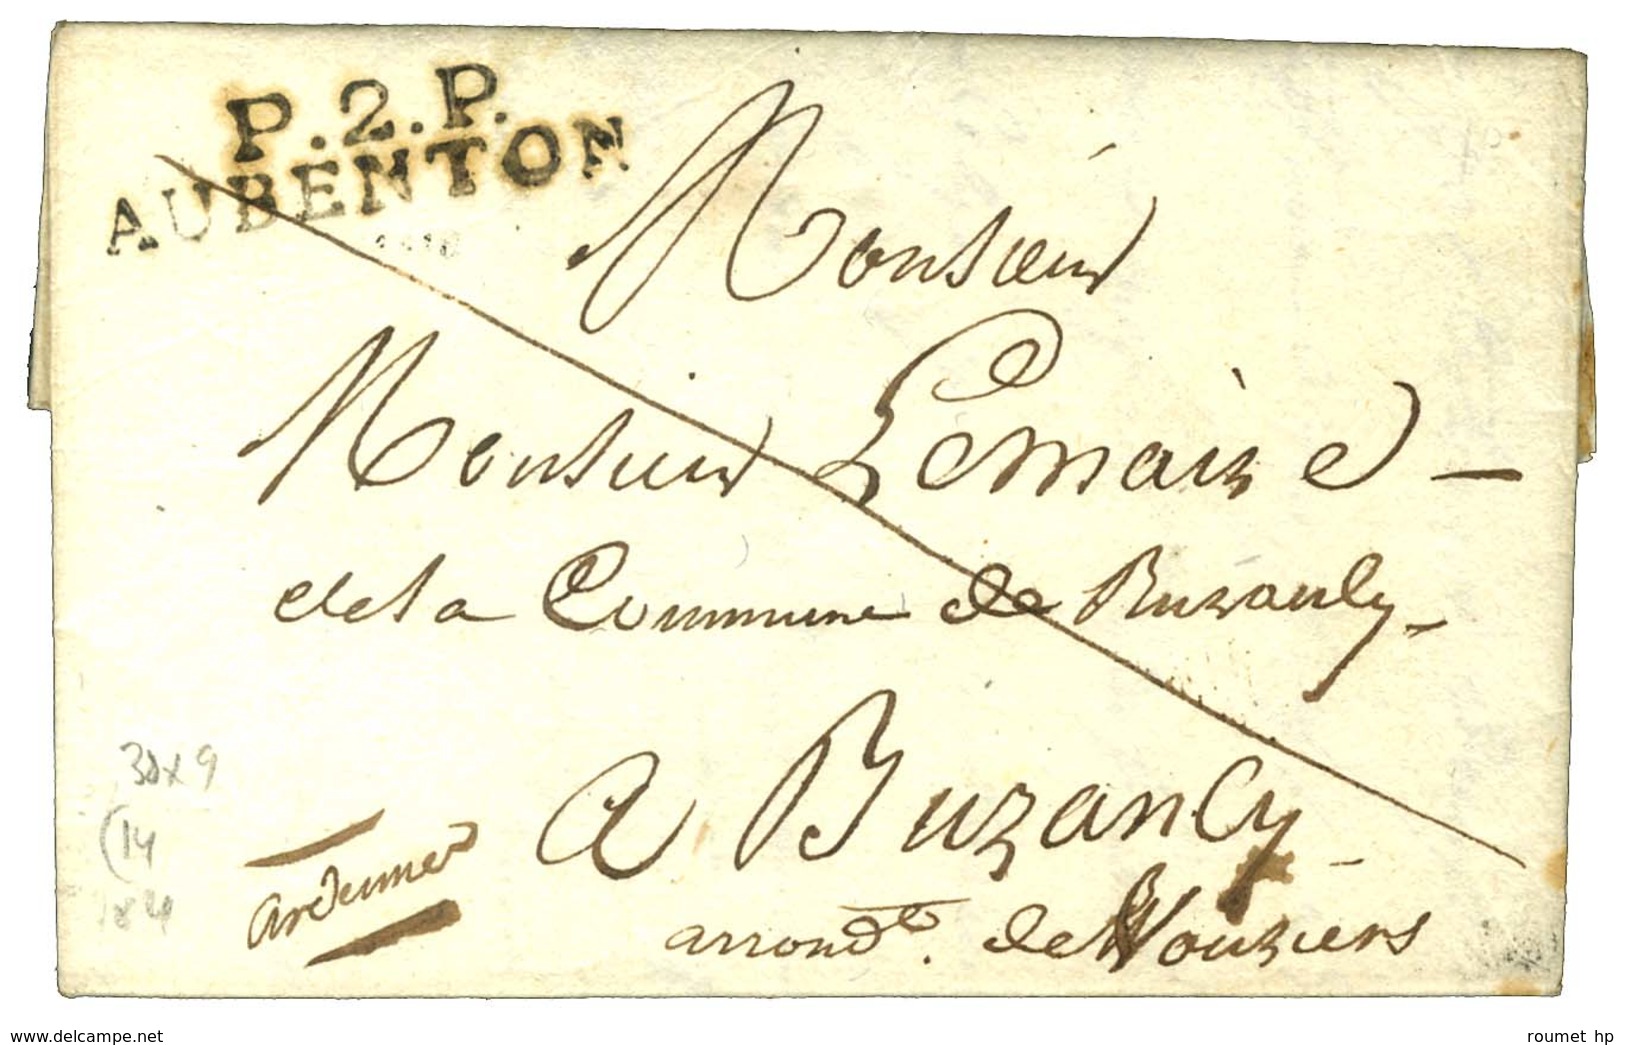 P.2.P.
AUBENTON
Monsieur
Monsieur Lemaire -
de la Commune de Buzancy -
a Buzancy -
arrondt. de Vouziers
ardennes
30 x 9
(14
delcampe.net
roumet hp